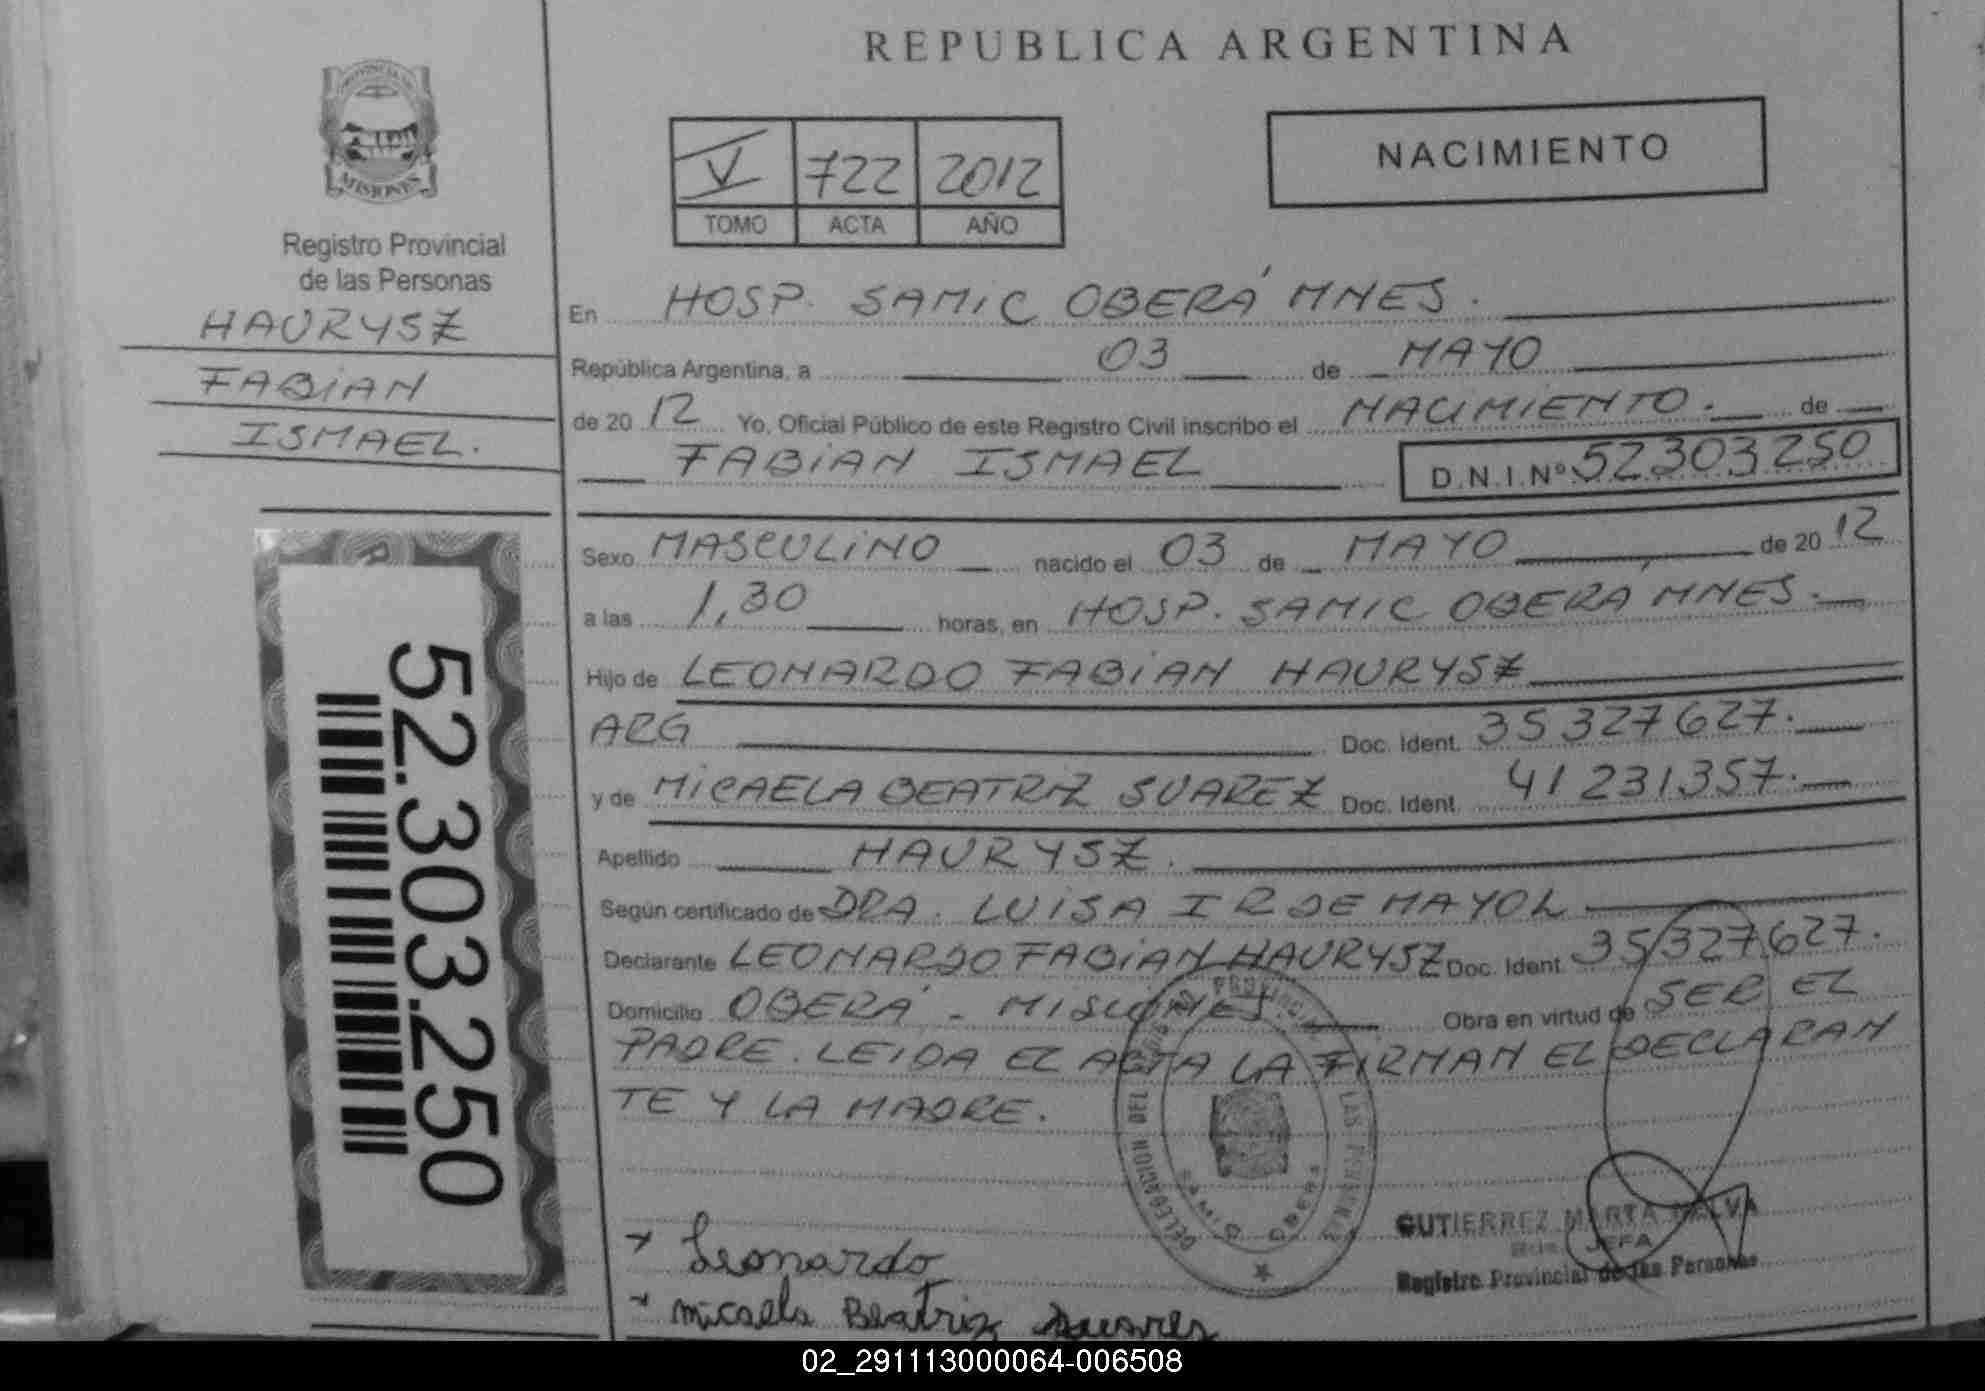 REPUBLICA ARGENTINA
PROVINCIA DE
MISIONES
Registro Provincial
de las Personas
HAURYSZ
FABIAN
ISMAEL.
52.303.250
V 722 2012
TOMO ACTA AÑO
NACIMIENTO
En HOSP. SAMIC OBERÁ MNES.
República Argentina, a 03 de MAYO
de 20 12 Yo, Oficial Público de este Registro Civil inscribo el NACIMIENTO. de
FABIAN ISMAEL D.N.I.Nº 52303250
Sexo MASCULINO nacido el 03 de MAYO de 20 12
a las 1,30 horas, en HOSP. SAMIC OBERÁ MNES.
Hijo de LEONARDO FABIAN HAURYSZ
ARG Doc. Ident. 35327627.
y de MICAELA BEATRIZ SUAREZ Doc. Ident. 41231357.
Apellido HAURYSZ.
Según certificado de DRA. LUISA IR DE MAYOL
Declarante LEONARDO FABIAN HAURYSZ Doc. Ident. 35327627.
Domicilio OBERÁ - MISIONES Obra en virtud de SER EL
PADRE. LEIDA EL ACTA LA FIRMAN EL DECLARAN
TE Y LA MADRE.
DELEGACION DEL PROVINCIAL LAS PERSONAS
SAMIC OBERA
Leonardo
micaela Beatriz suarez
GUTIERREZ MARTA
JEFA
Registro Provincial de las Personas
02_291113000064-006508